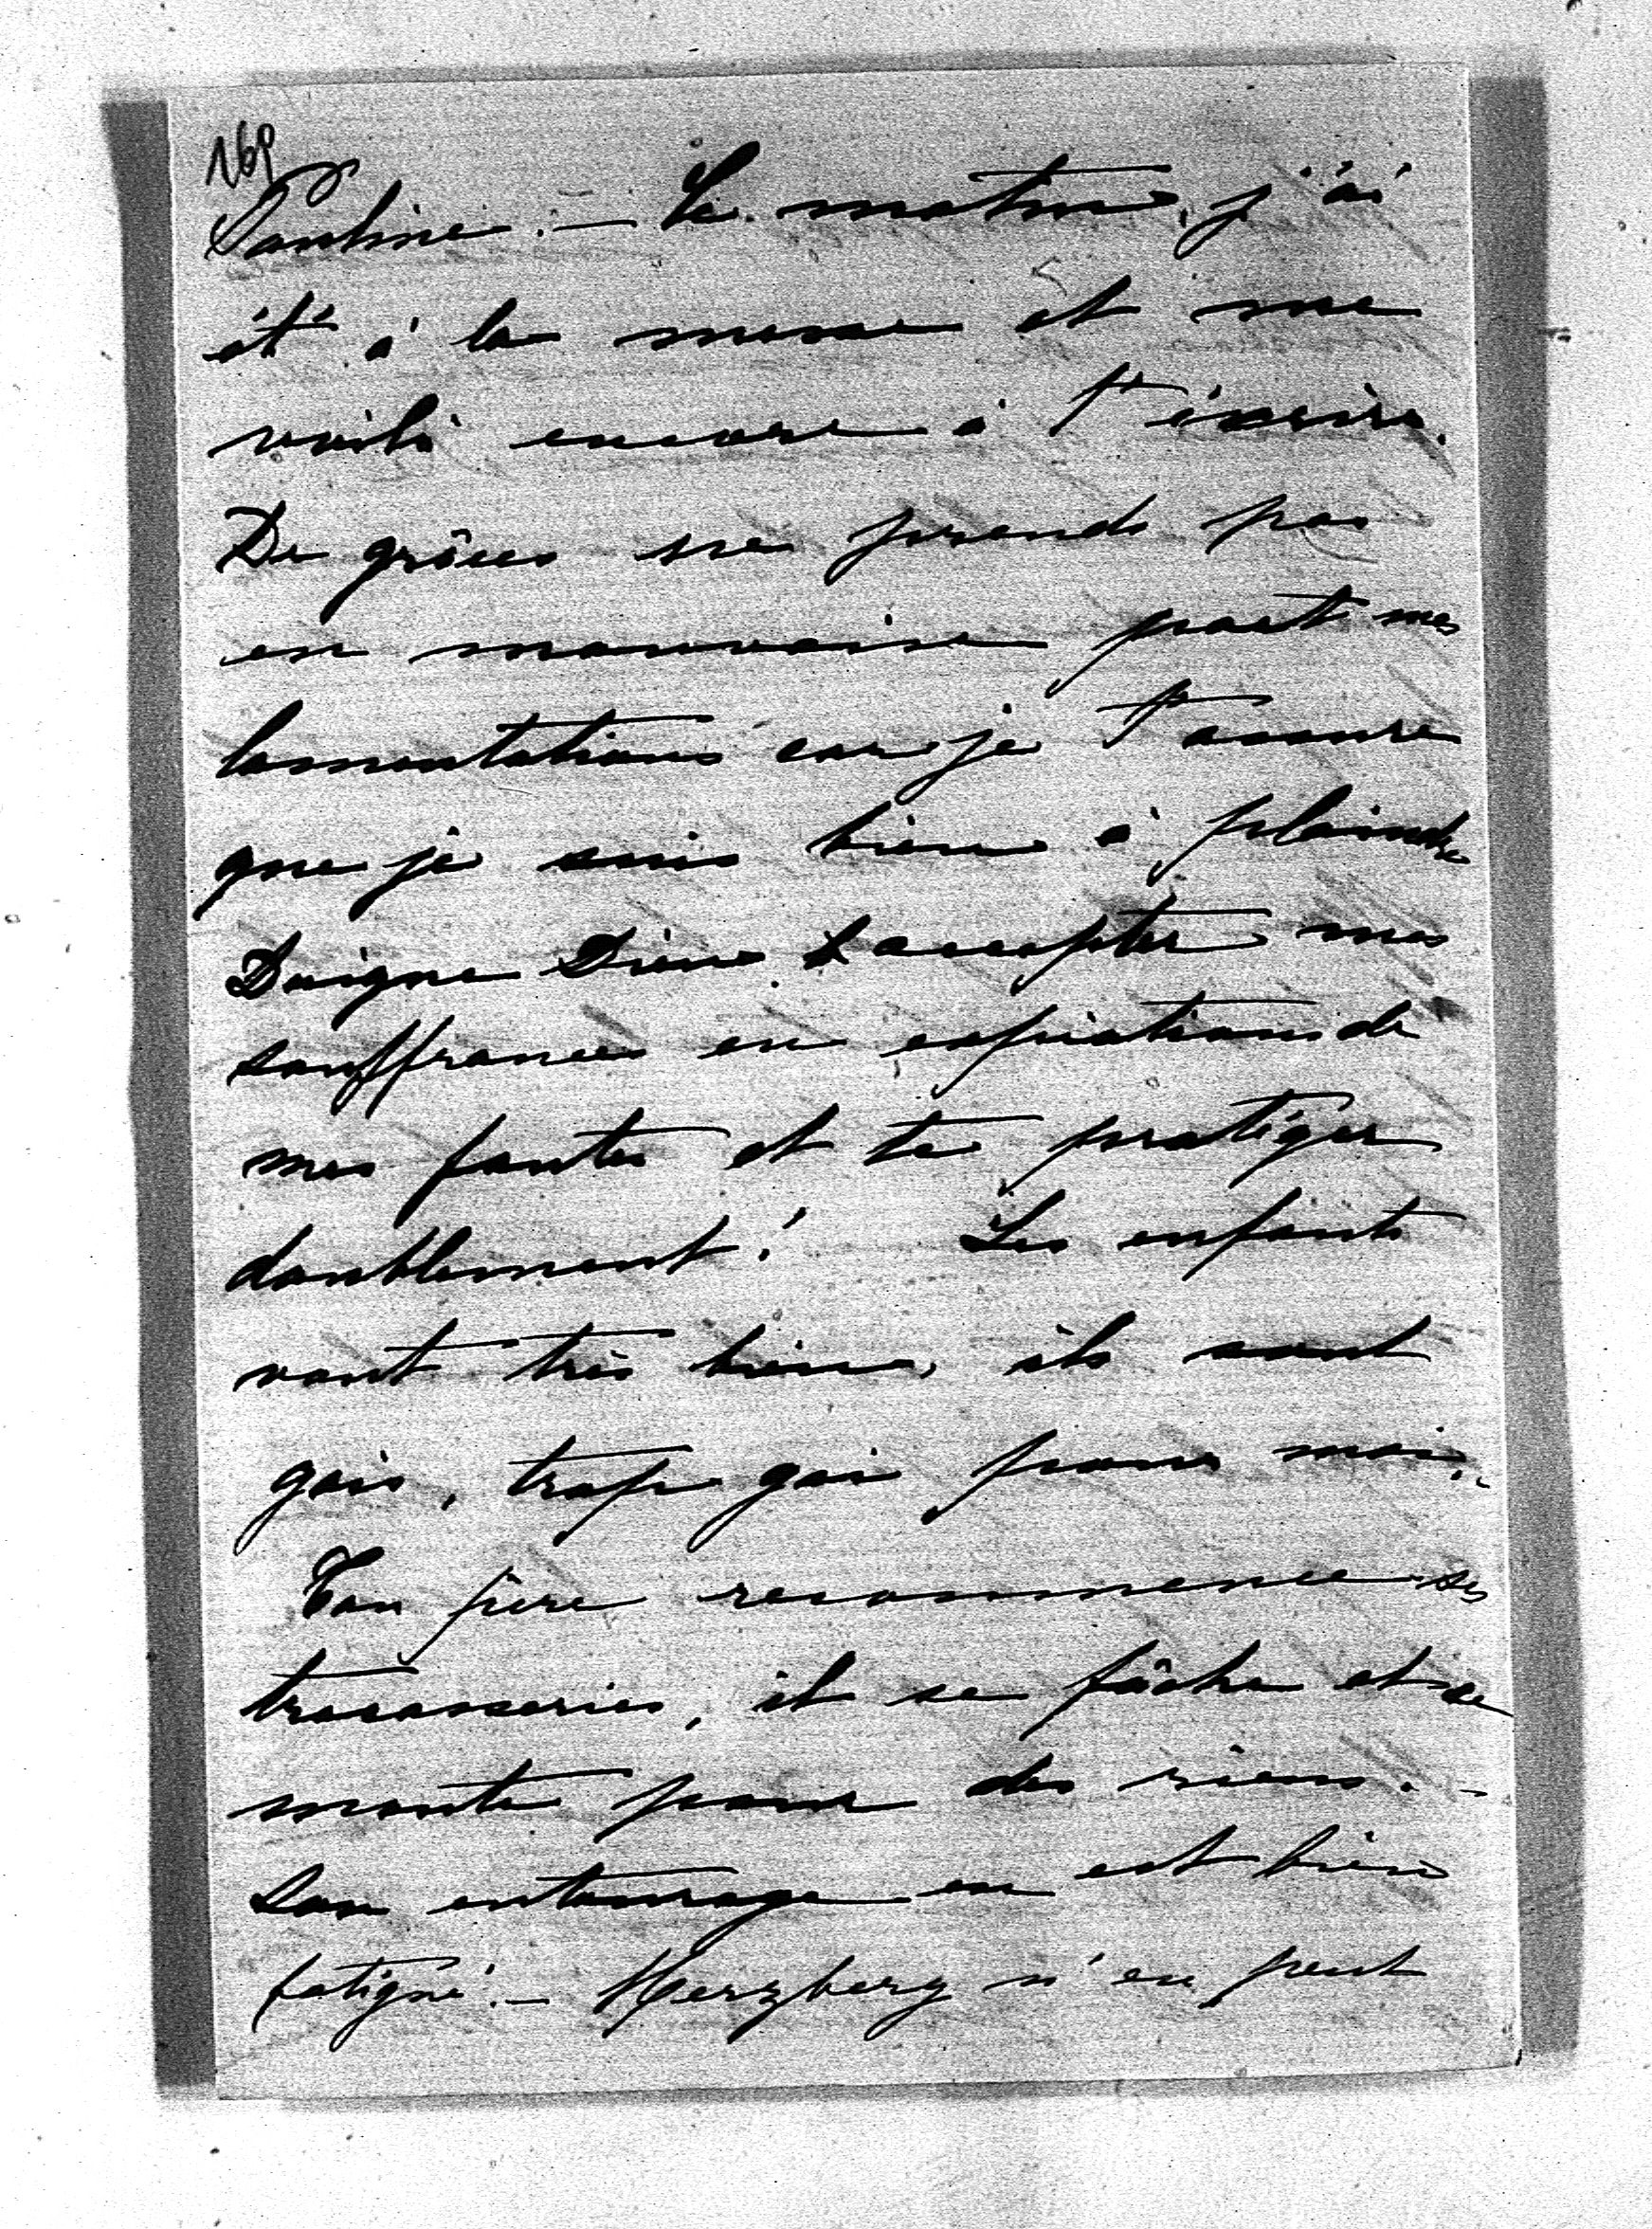 169
Pauline. — Ce matin, j'ai
été à la messe et me
voilà encore à t'écrire.
De grâces ne prends pas
en mauvaise part mes
lamentations car je t'assure
que je suis bien à plaindre
Daigne Dieu accepter mes
souffrances en expiations de
mes fautes et te protéger
doublement! Les enfants
vont très bien, ils sont
gais, trop gais pour moi..
Ton père recommence ses
tracasseries, il se fâche et se
monte pour des riens. -
Son entourage en est bien
fatigué. — Herzberg n'en peut